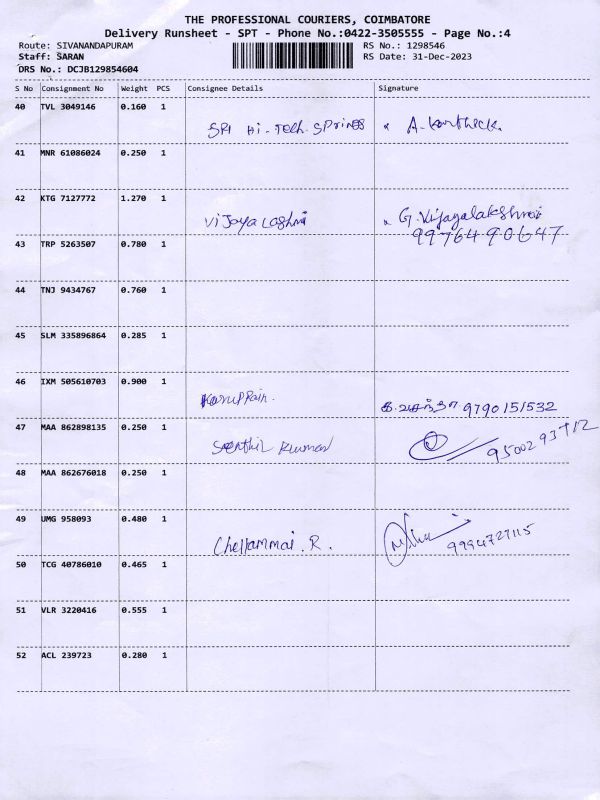 THE PROFESSIONAL COURIERS, COIMBATORE
Delivery Runsheet - SPT - Phone No.:0422-3505555 - Page No.:4
Route: SIVANANDAPURAM RS No.: 1298546
Staff: SARAN RS Date: 31-Dec-2023
DRS No.: DCJB129854604
S No Consignment No Weight PCS Consignee Details Signature
40 TVL 3049146 0.160 1
SRI Hi-Tech. SPrings x A. Kartheck.
41 MNR 61086024 0.250 1
42 KTG 7127772 1.270 1
Vijaya Lashmi x G. Vijayalakshmi
43 TRP 5263507 0.780 1 9976490647
44 TNJ 9434767 0.760 1
45 SLM 335896864 0.285 1
46 IXM 505610703 0.900 1
9790151532
47 MAA 862898135 0.250 1
Senthil Kumar
48 MAA 862676018 0.250 1
49 UMG 958093 0.480 1
Chellammai. R. 9994727115
50 TCG 40786010 0.465 1
51 VLR 3220416 0.555 1
52 ACL 239723 0.280 1